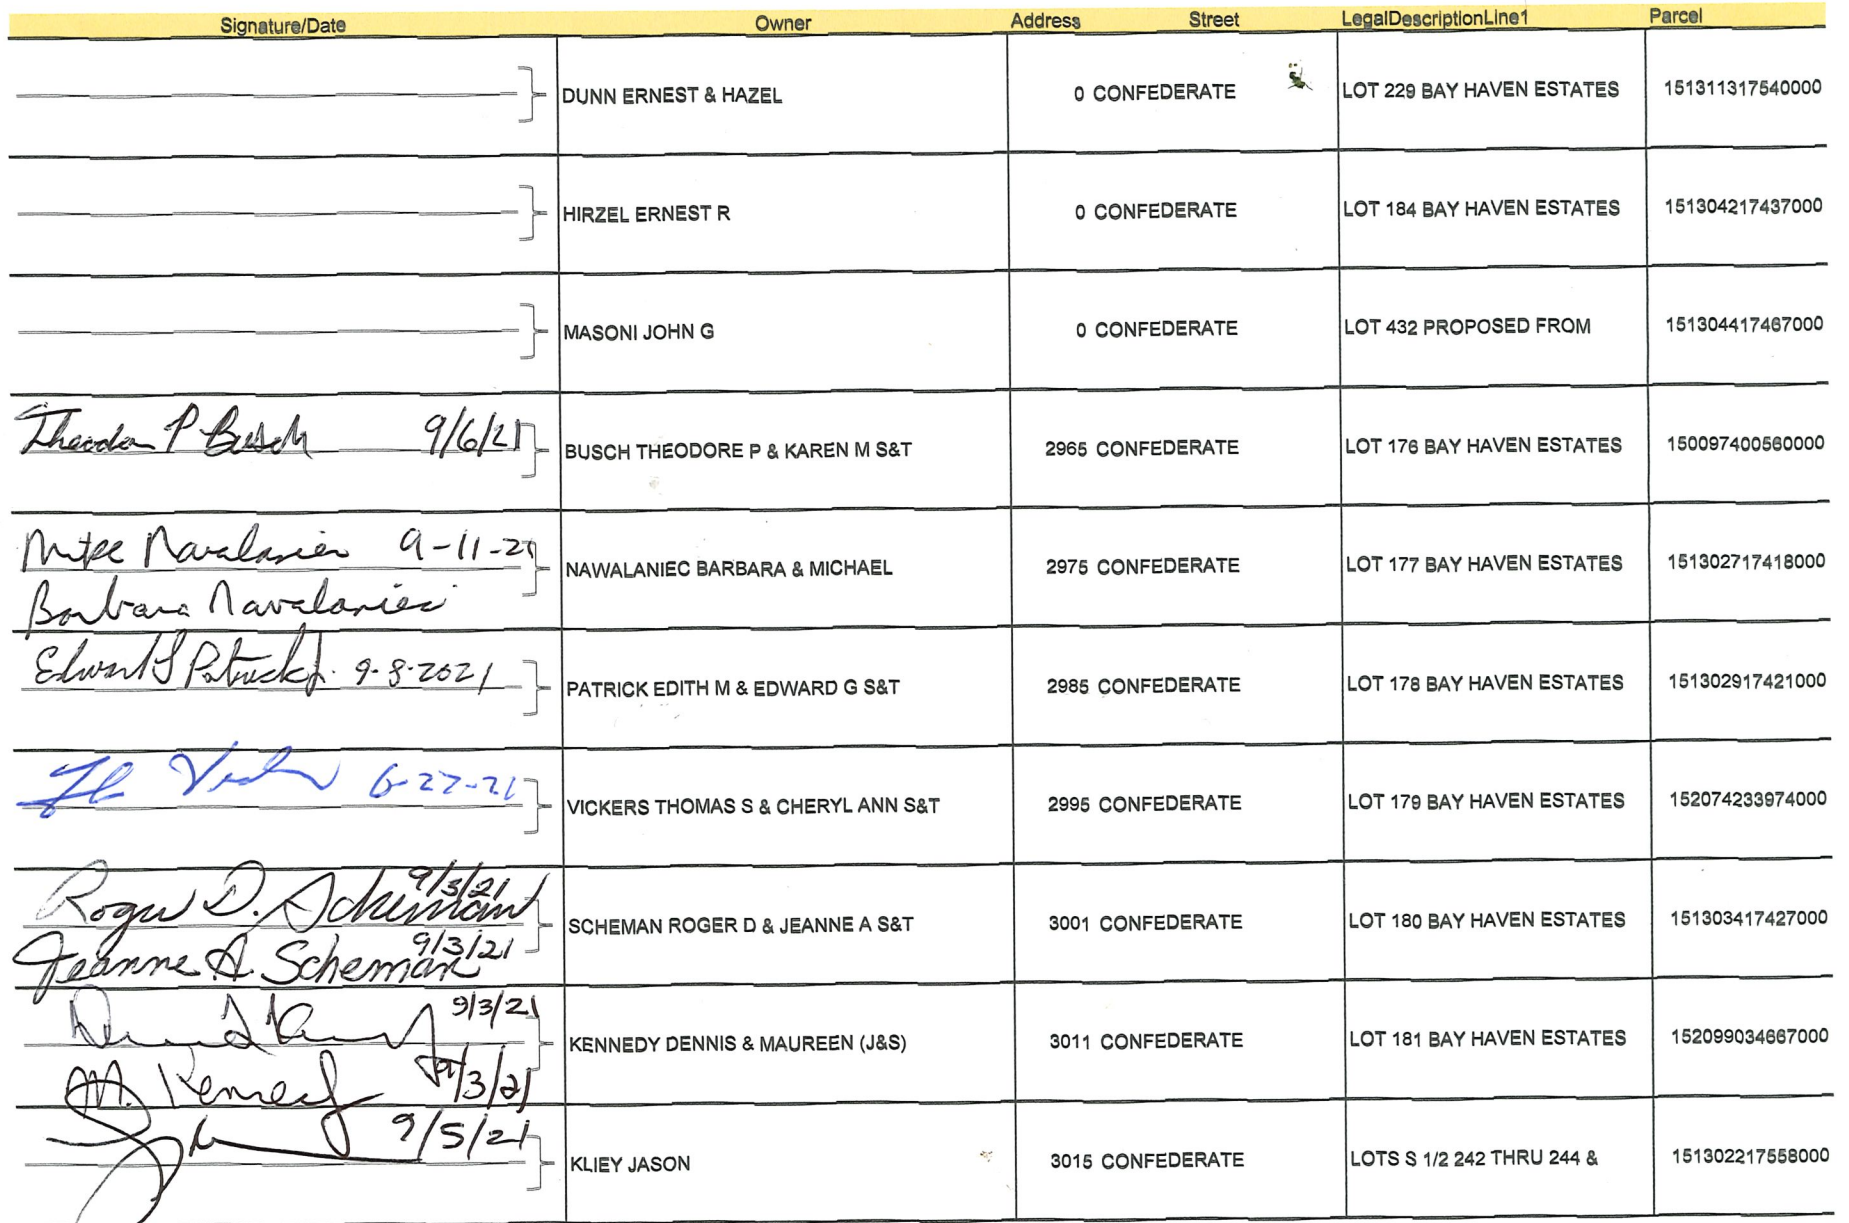 Signature/Date Owner Address Street LegalDescriptionLine1 Parcel
DUNN ERNEST & HAZEL 0 CONFEDERATE LOT 229 BAY HAVEN ESTATES 151311317540000
HIRZEL ERNEST R 0 CONFEDERATE LOT 184 BAY HAVEN ESTATES 151304217437000
MASONI JOHN G 0 CONFEDERATE LOT 432 PROPOSED FROM 151304417467000
Theodore P Busch 9/6/21 BUSCH THEODORE P & KAREN M S&T 2965 CONFEDERATE LOT 176 BAY HAVEN ESTATES 150097400560000
Mike Nawalaniec 9-11-21 NAWALANIEC BARBARA & MICHAEL 2975 CONFEDERATE LOT 177 BAY HAVEN ESTATES 151302717418000
Barbara Nawalaniec
Edward G Patrick Jr. 9-8-2021 PATRICK EDITH M & EDWARD G S&T 2985 CONFEDERATE LOT 178 BAY HAVEN ESTATES 151302917421000
6-27-21 VICKERS THOMAS S & CHERYL ANN S&T 2995 CONFEDERATE LOT 179 BAY HAVEN ESTATES 152074233974000
Roger D. Scheman 9/3/21 SCHEMAN ROGER D & JEANNE A S&T 3001 CONFEDERATE LOT 180 BAY HAVEN ESTATES 151303417427000
Jeanne A. Scheman 9/3/21
9/3/21 KENNEDY DENNIS & MAUREEN (J&S) 3011 CONFEDERATE LOT 181 BAY HAVEN ESTATES 152099034667000
M. Kennedy 9/3/21
9/5/21 KLIEY JASON 3015 CONFEDERATE LOTS S 1/2 242 THRU 244 & 151302217558000